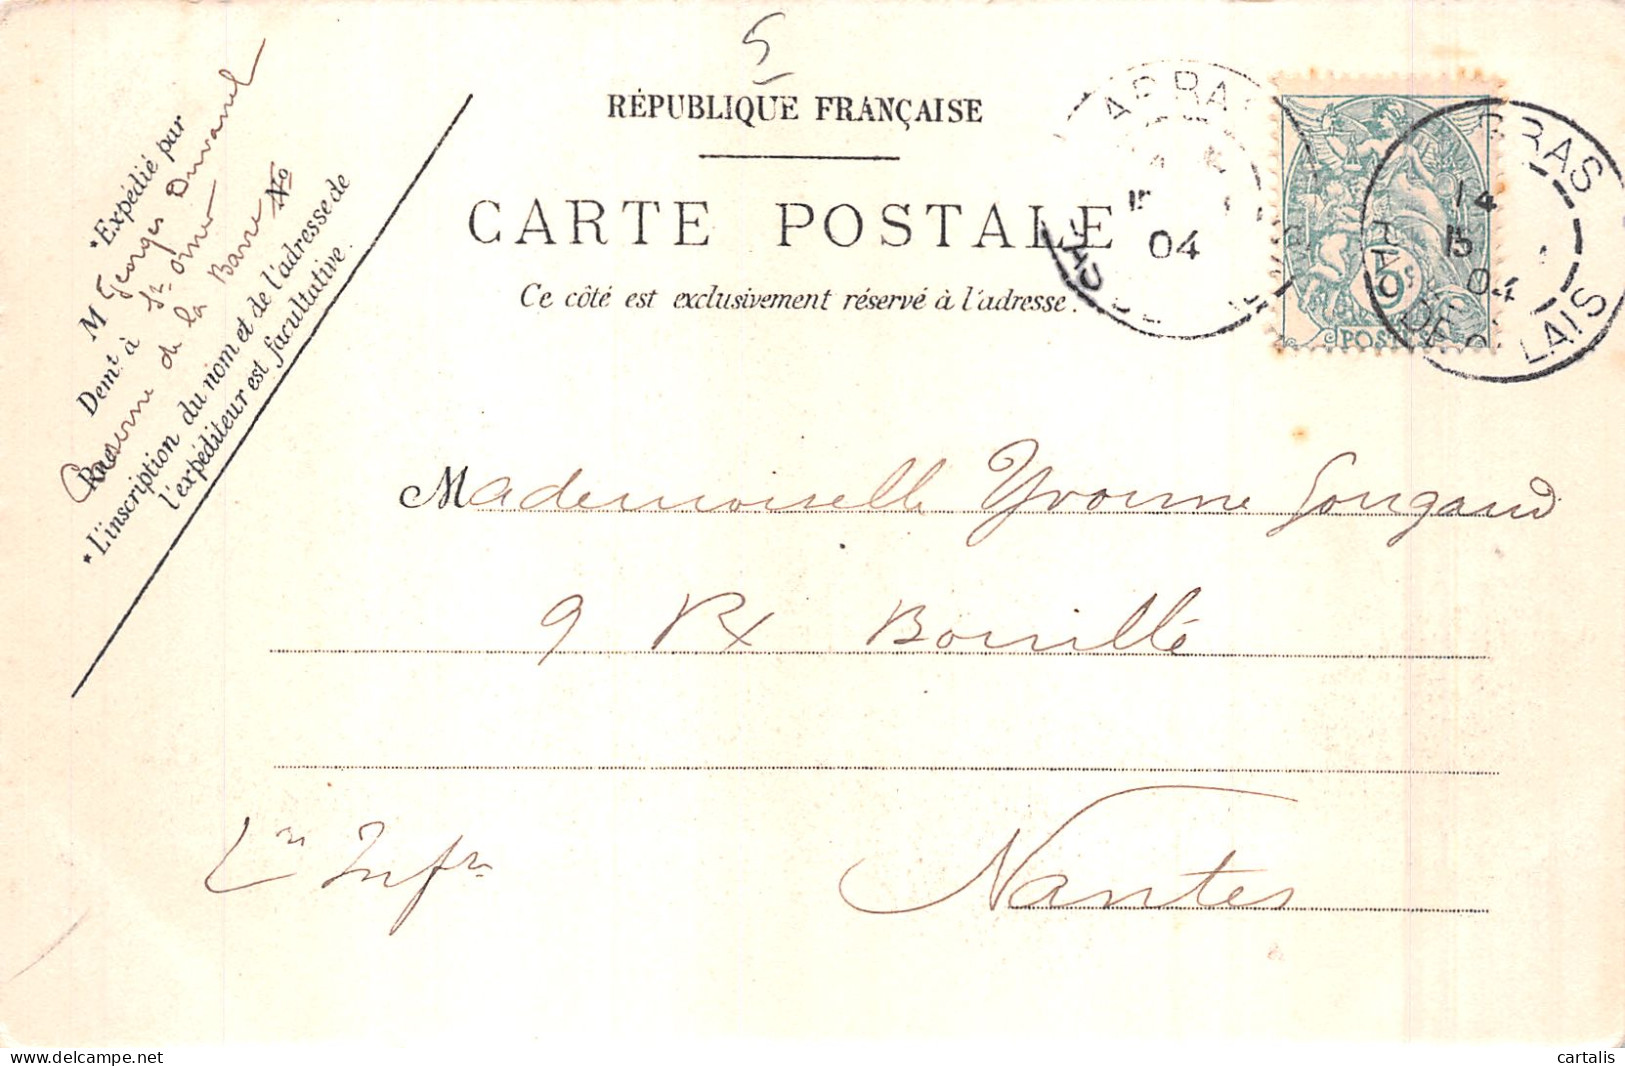 5
RÉPUBLIQUE FRANÇAISE
CARTE POSTALE
Ce côté est exclusivement réservé à l'adresse.
*Expédié par
M Georges Duvanel
Demt à St Omer
Rue Caserne de la Barre No
*L'inscription du nom et de l'adresse de
l'expéditeur est facultative.
ARRAS
15
04
CALAIS
5c
POSTES
ARRAS
14
15
04
PAS DE CALAIS
Mademoiselle Yvonne Gougaud
9 Rx Bouillé
Lre Infre
Nantes
cartalis